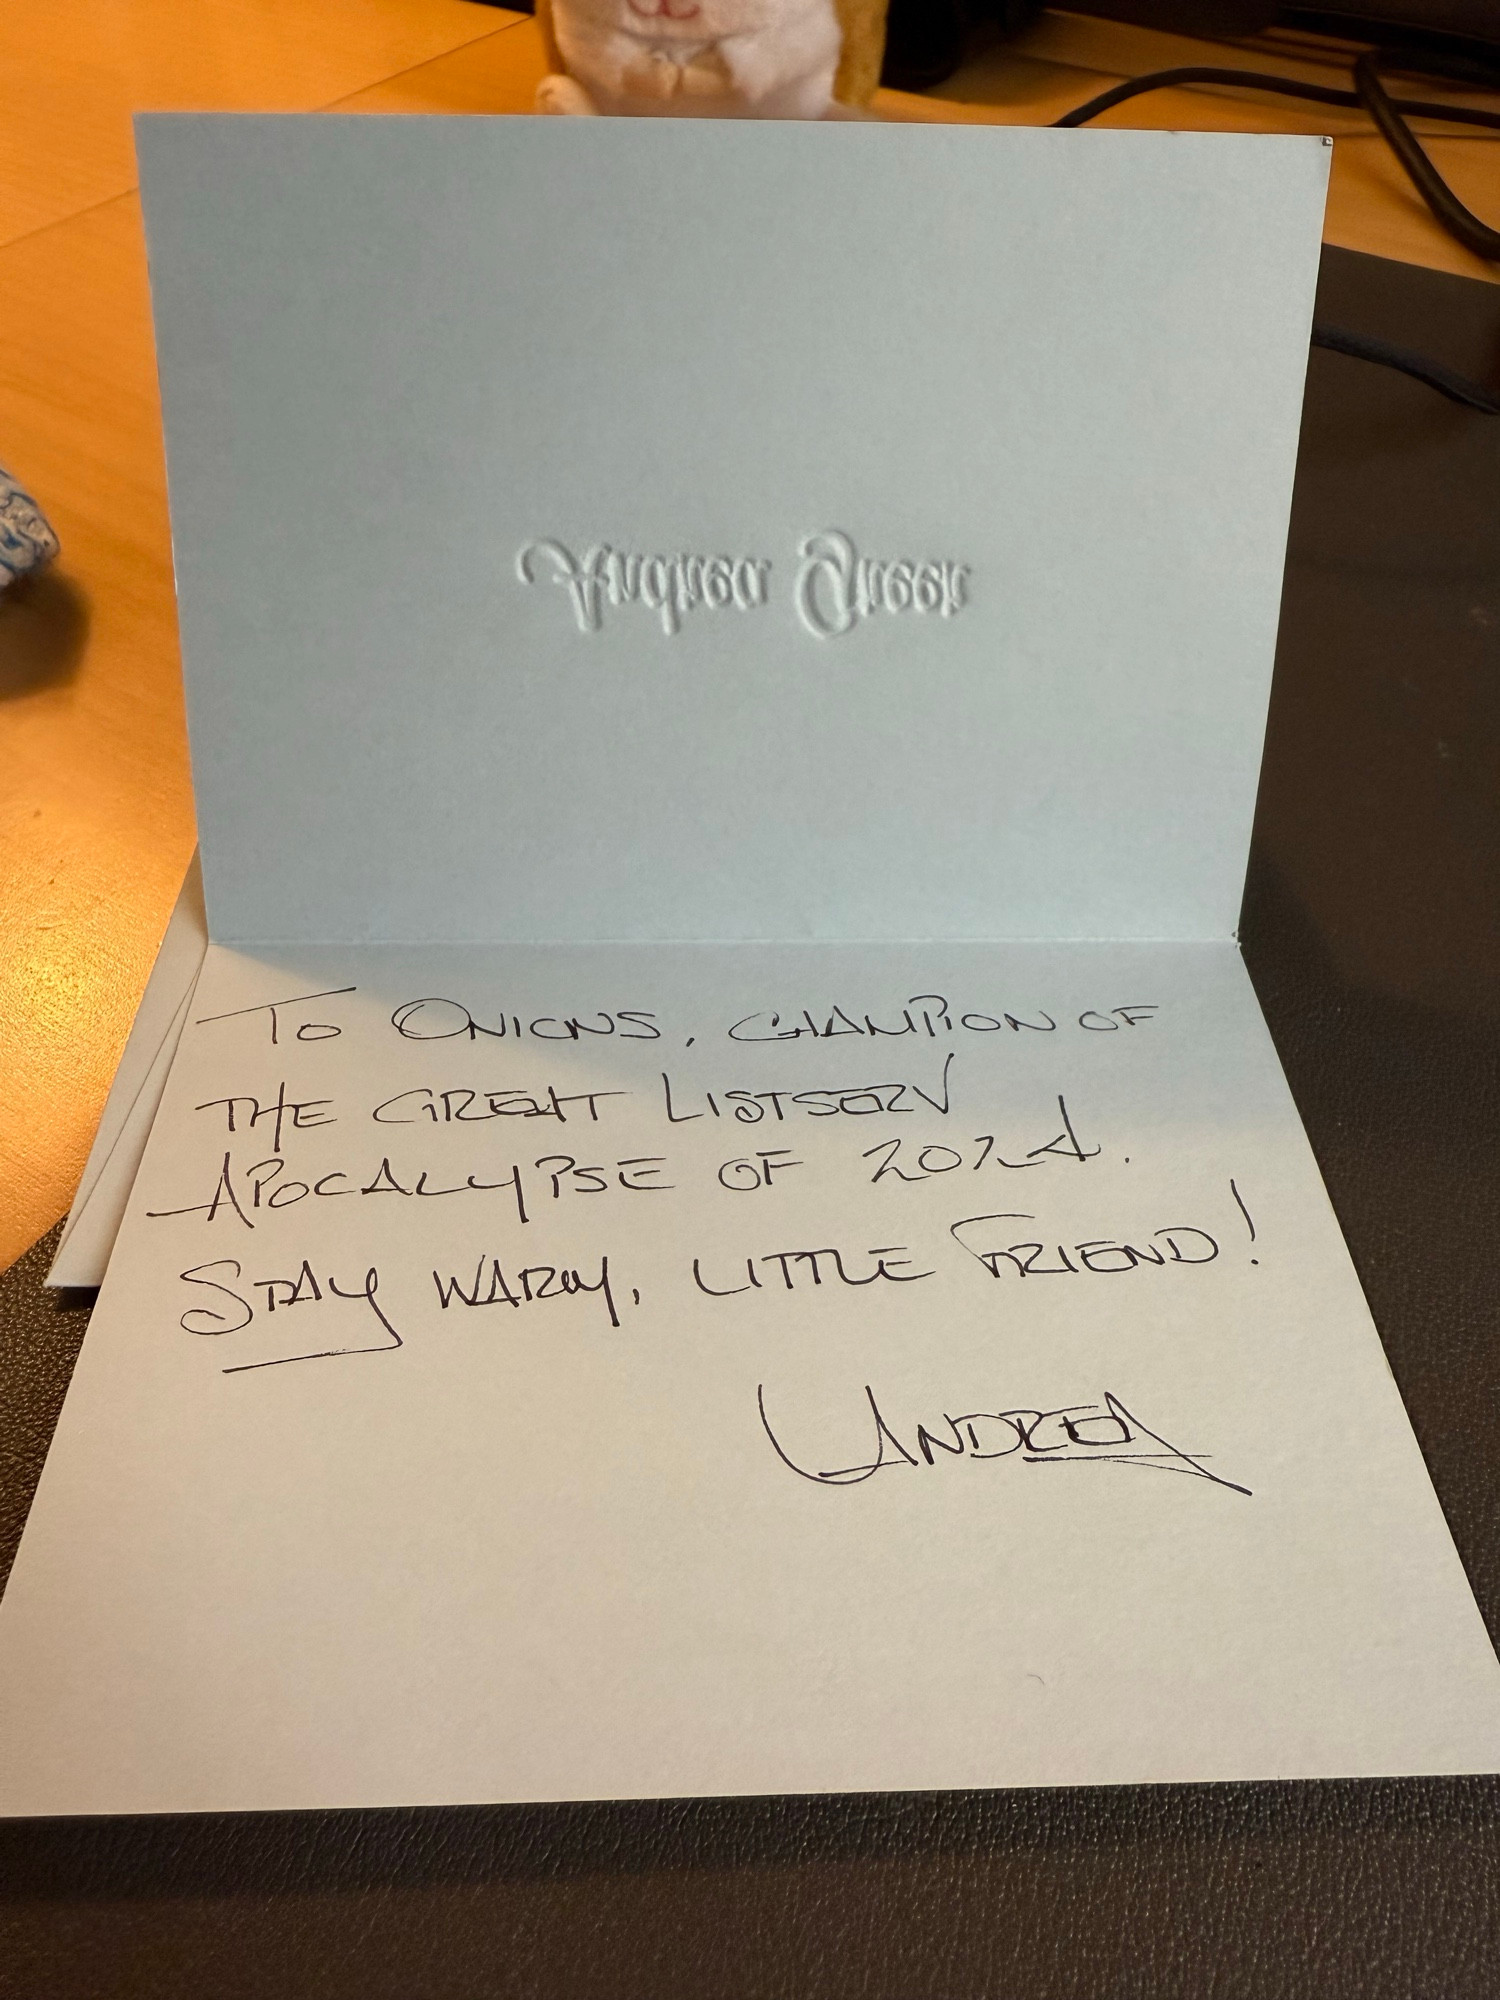 Andrea Green
To Onions, Champion of
the Great Listserv
Apocalypse of 2024.
Stay warm, little friend!
Andrea